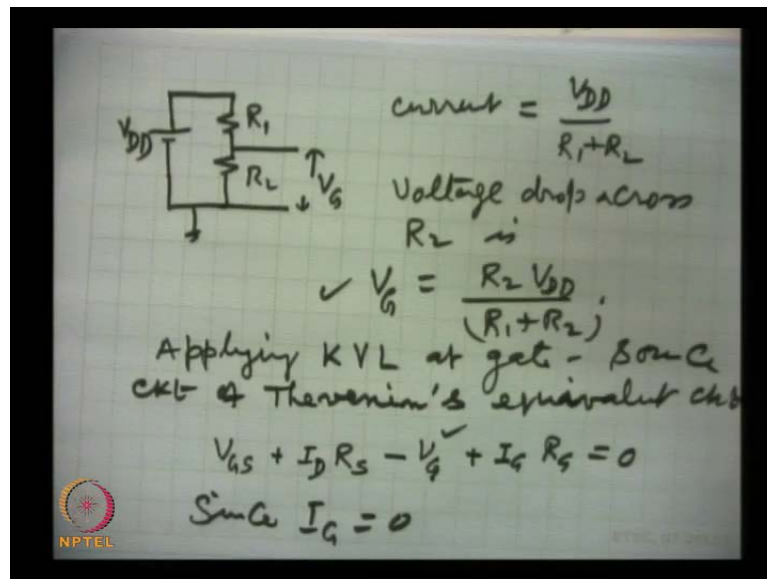 V_DD
R_1
R_2
V_G
current = V_DD / (R_1+R_2)
Voltage drop across
R_2 is
✓ V_G = R_2 V_DD / (R_1+R_2) .
Applying KVL at gate - Source
ckt of Thevenin's equivalent ckt
V_GS + I_D R_S - V_G ✓ + I_G R_G = 0
Since I_G = 0
NPTEL